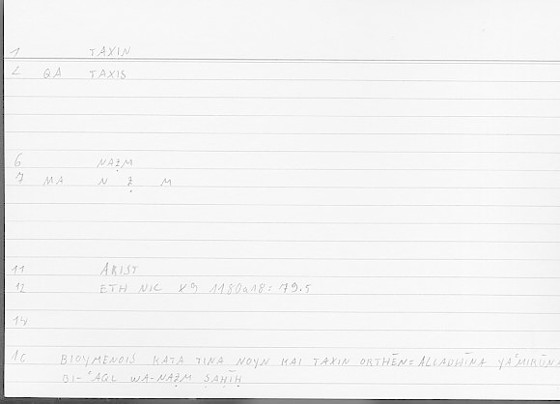 1 TAXIN
2 QA TAXIS
6 NAẒM
7 MA N Ẓ M
11 ARIST
12 ETH NIC K9 1180a18: 79.5
14
15 BIOYMENOIS KATA TINA NOYN KAI TAXIN ORTHĒN: ALLADHĪNA YAʿMIRŪNA
BI-ʿAQL WA-NAẒM ṢAḤĪḤ